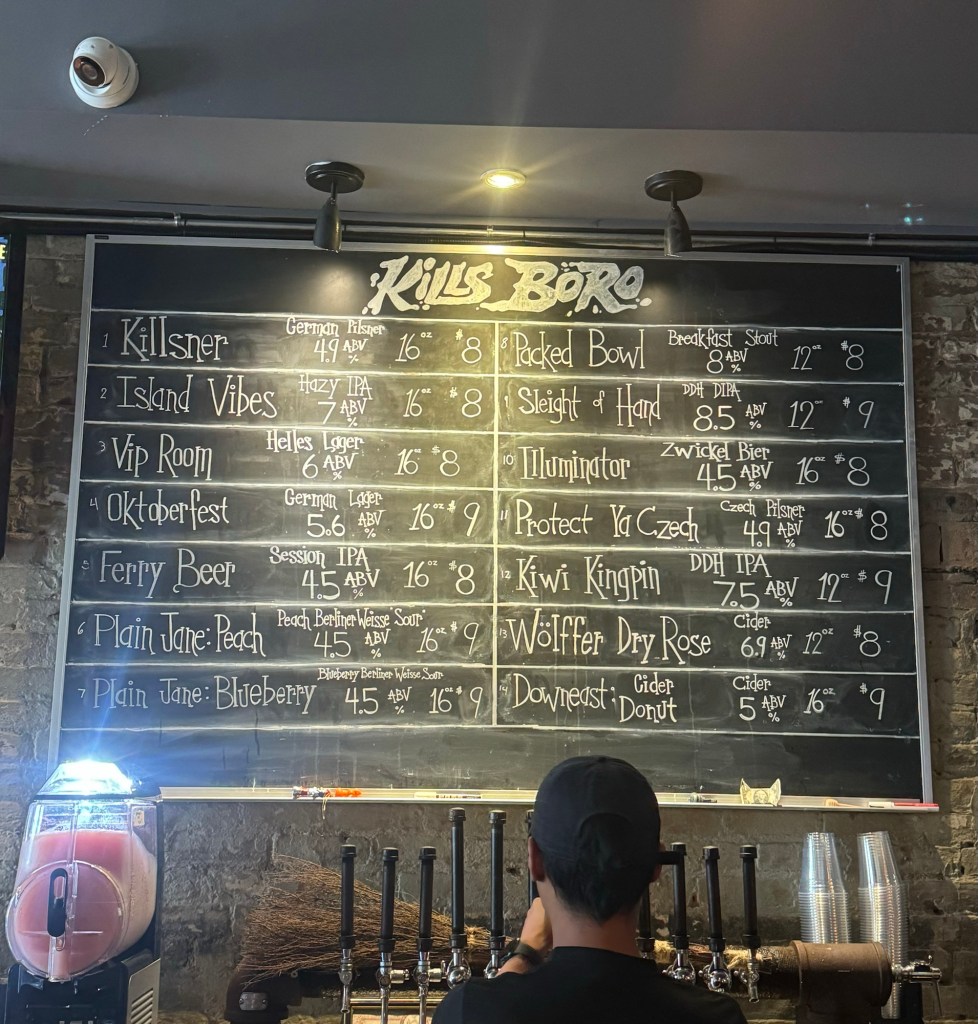 KILLS BORO
1 Killsner German Pilsner 4.9 ABV % 16 oz $8
2 Island Vibes Hazy IPA 7 ABV % 16 oz $8
3 Vip Room Helles Lager 6 ABV % 16 oz $8
4 Oktoberfest German Lager 5.6 ABV % 16 oz $9
5 Ferry Beer Session IPA 4.5 ABV % 16 oz $8
6 Plain Jane: Peach Peach Berliner Weisse Sour 4.5 ABV % 16 oz $9
7 Plain Jane: Blueberry Blueberry Berliner Weisse Sour 4.5 ABV % 16 oz $9
8 Packed Bowl Breakfast Stout 8 ABV % 12 oz $8
9 Sleight of Hand DDH DIPA 8.5 ABV % 12 oz $9
10 Illuminator Zwickel Bier 4.5 ABV % 16 oz $8
11 Protect Ya Czech Czech Pilsner 4.9 ABV % 16 oz $8
12 Kiwi Kingpin DDH IPA 7.5 ABV % 12 oz $9
13 Wölffer Dry Rose Cider 6.9 ABV % 12 oz $8
14 Downeast: Cider Donut Cider 5 ABV % 16 oz $9